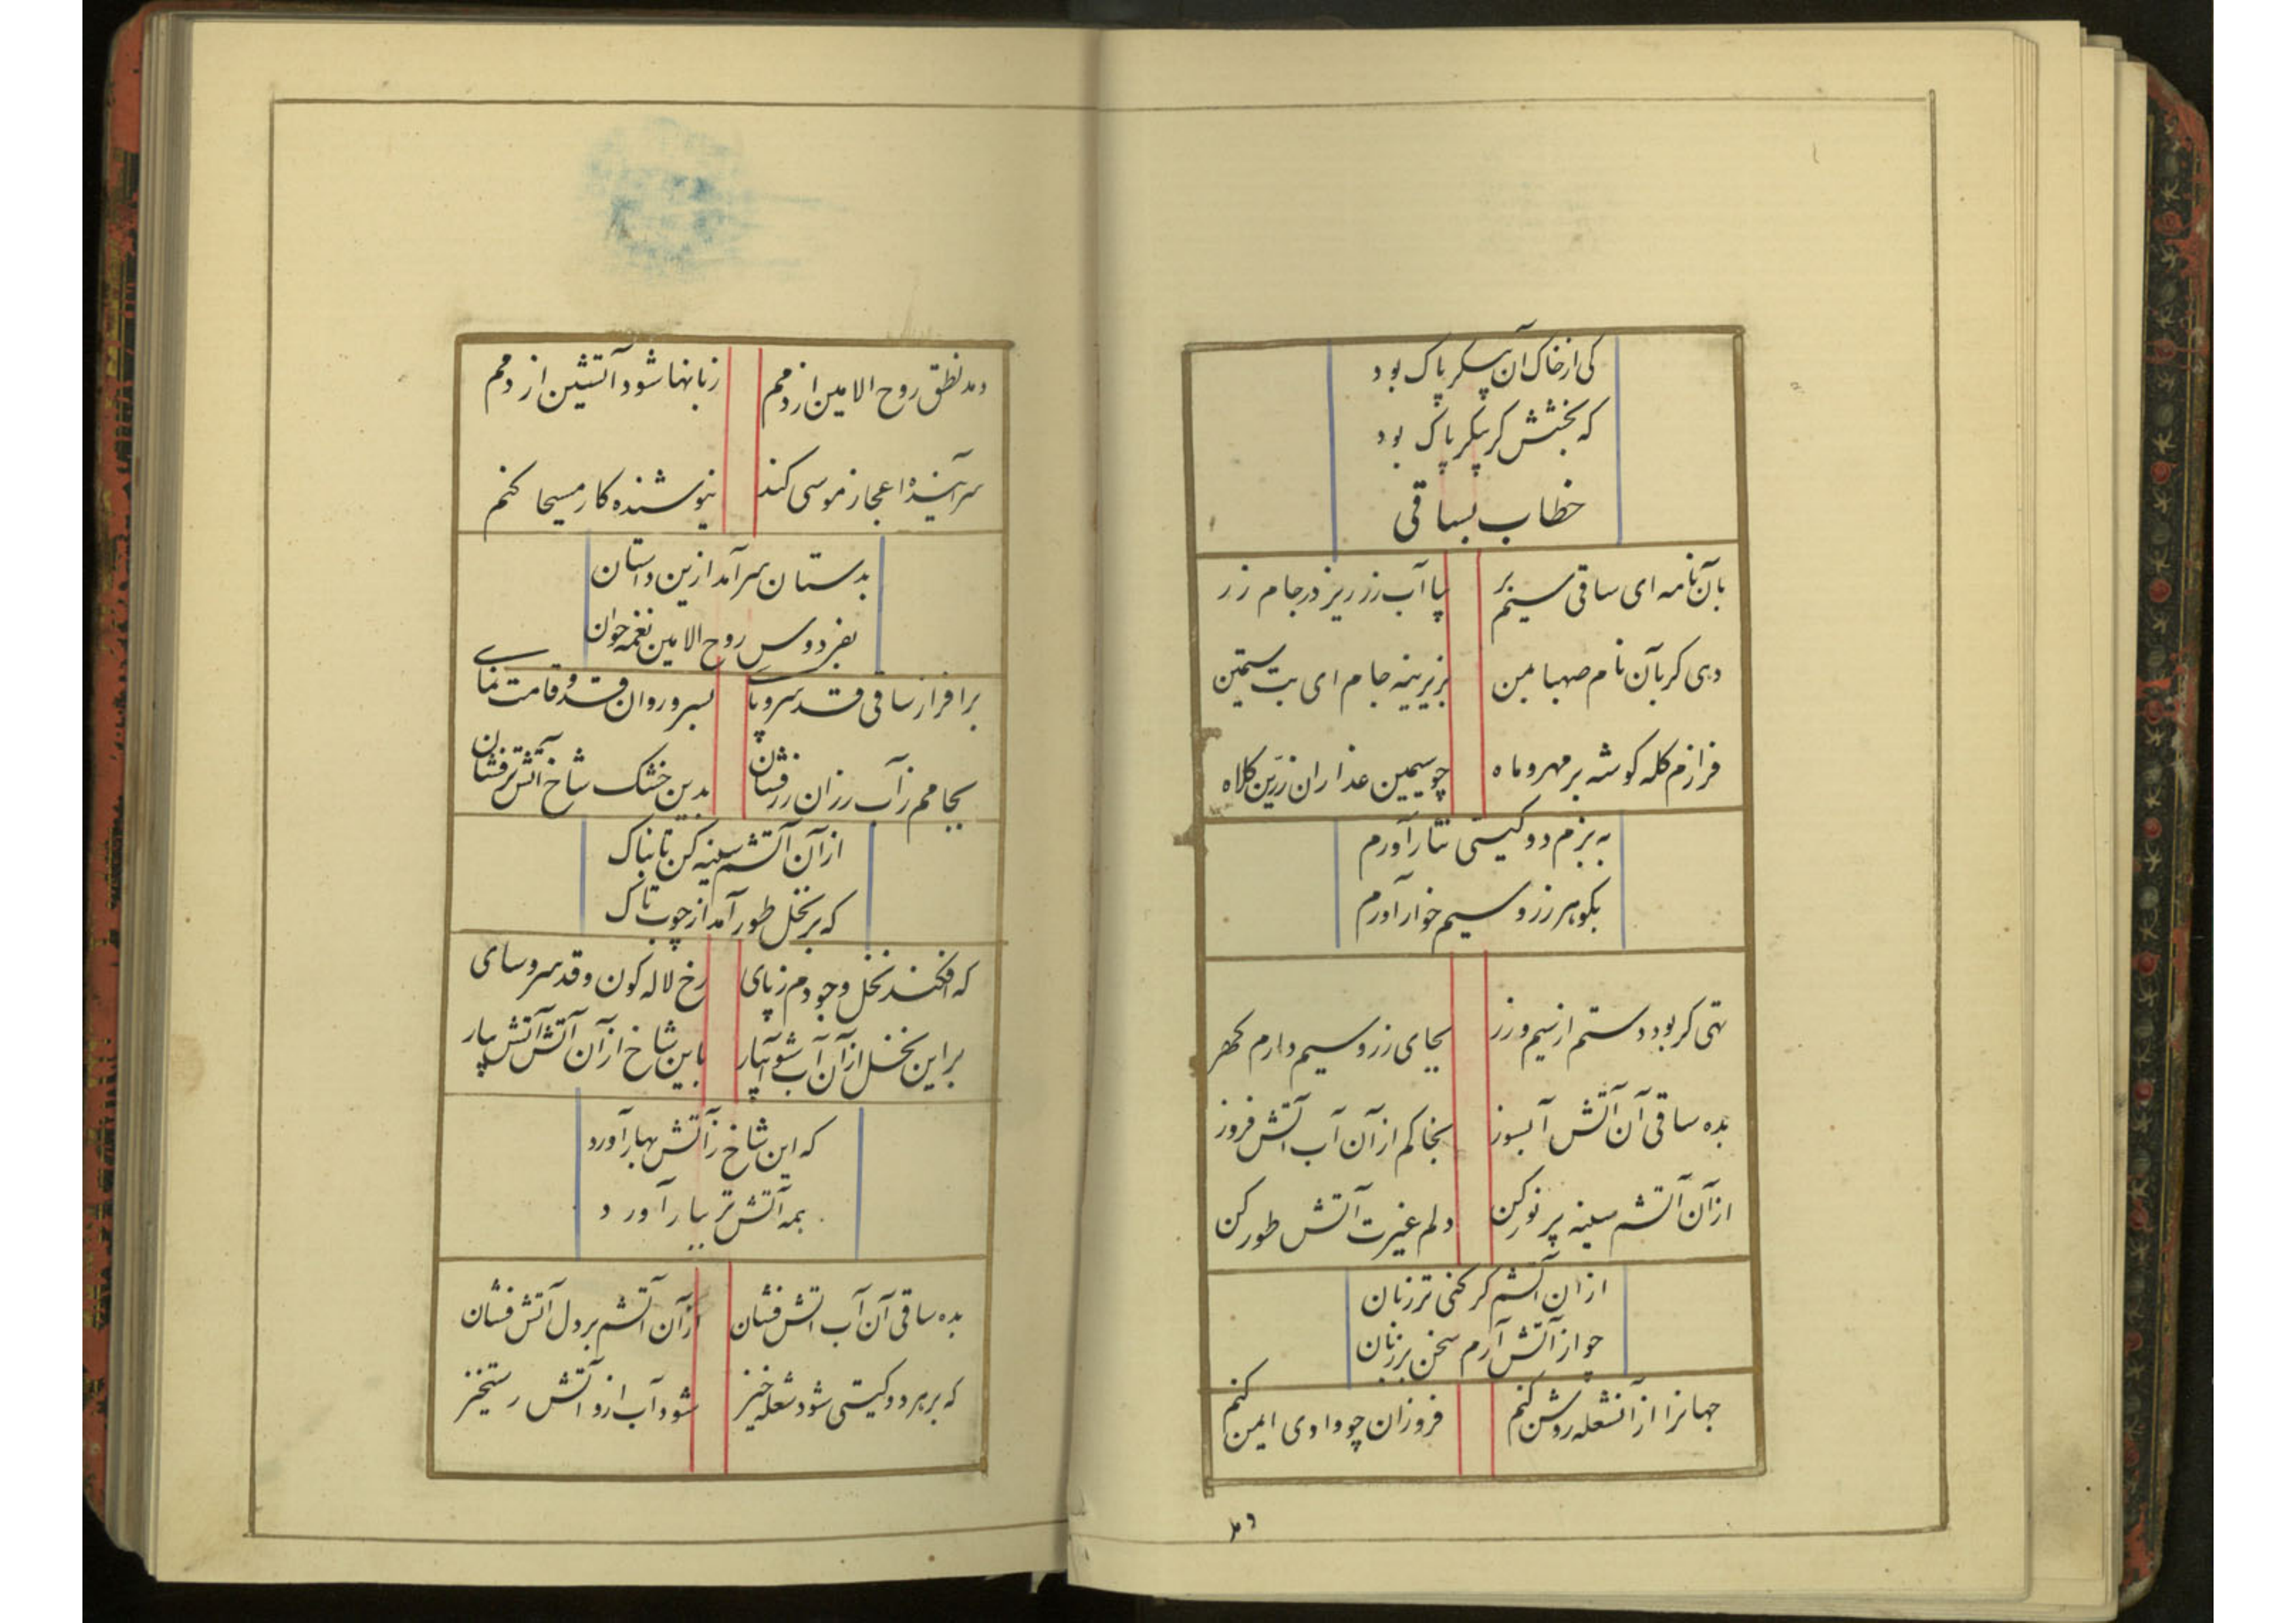 کی از خاک آن پیکر پاک بود
که بخشش کر پیکر پاک بود
خطاب بساقی
بآن نامه ای ساقی سیم بر بیا آب زر ریز در جام زر
دهی کر بآن نام صهبا بمن بزرینه جام ای بت سیمتن
فرازم کله کوشه بر مهر و ماه چو سیمین عذاران زرین کلاه
به بزم دو کیتی نثار آورم
بکوهر زر و سیم خوار آورم
تهی کر بود دستم از سیم و زر بجای زر و سیم دارم کهر
بده ساقی آن آتش آبسوز بخاکم از آن آب آتش فروز
از آن آتشم سینه پر نور کن دلم غیرت آتش طور کن
از ان آتشم کر کنی تر زبان
چو از آتش آرم سخن بر زبان
جهانرا از آنشعله روشن کنم فروزان چو وادی ایمن کنم
دمد
دمد نطق روح الامین از دمم زبانها شود آتشین از دمم
سرآینده اعجاز موسی کند نیوشنده کار مسیحا کنم
بدستان سرآمد ازین داستان
بفردوس روح الامین نغمه خوان
برافراز ساقی قد سرو پا بسرو روان قد و قامت نمای
بجامم ز آب رزان زرفشان بدین خشک شاخ آتش تر فشان
از آن آتشم سینه کن تابناک
که بر نخل طور آمد از چوب تاک
که افکند نخل وجودم ز پای رخ لاله کون و قد سرو سای
بر این نخل از آن آب شو آبیار باین شاخ از آن آتش آتش بیار
که این شاخ ز آتش بهار آورد
همه آتش تر ببار آورد
بده ساقی آن آب آتش فشان از آن آتشم بر دل آتش فشان
که بر هر دو کیتی شود شعله خیز شود آب ازو آتش رستخیز